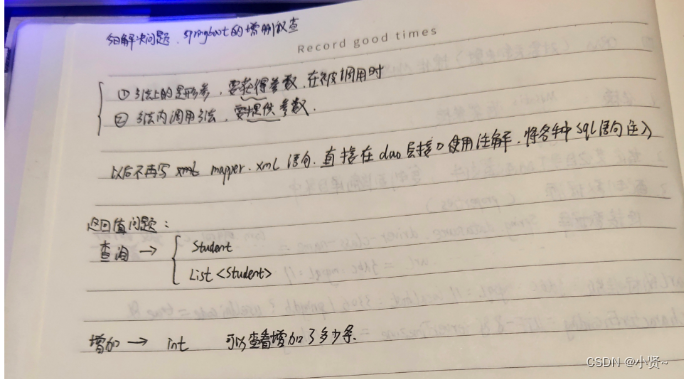 解决问题、springboot的增删改查
Record good times
① 方法上的是形参,要获得参数,在被调用时
② 方法内调用方法,要提供参数.
以后不再写 xml mapper.xml 语句,直接在dao层接口使用注解,将各种sql语句注入
返回值问题:
查询 → Student
List <Student>
增加 → int 可以查看增加了多少条.
CSDN @小贤~